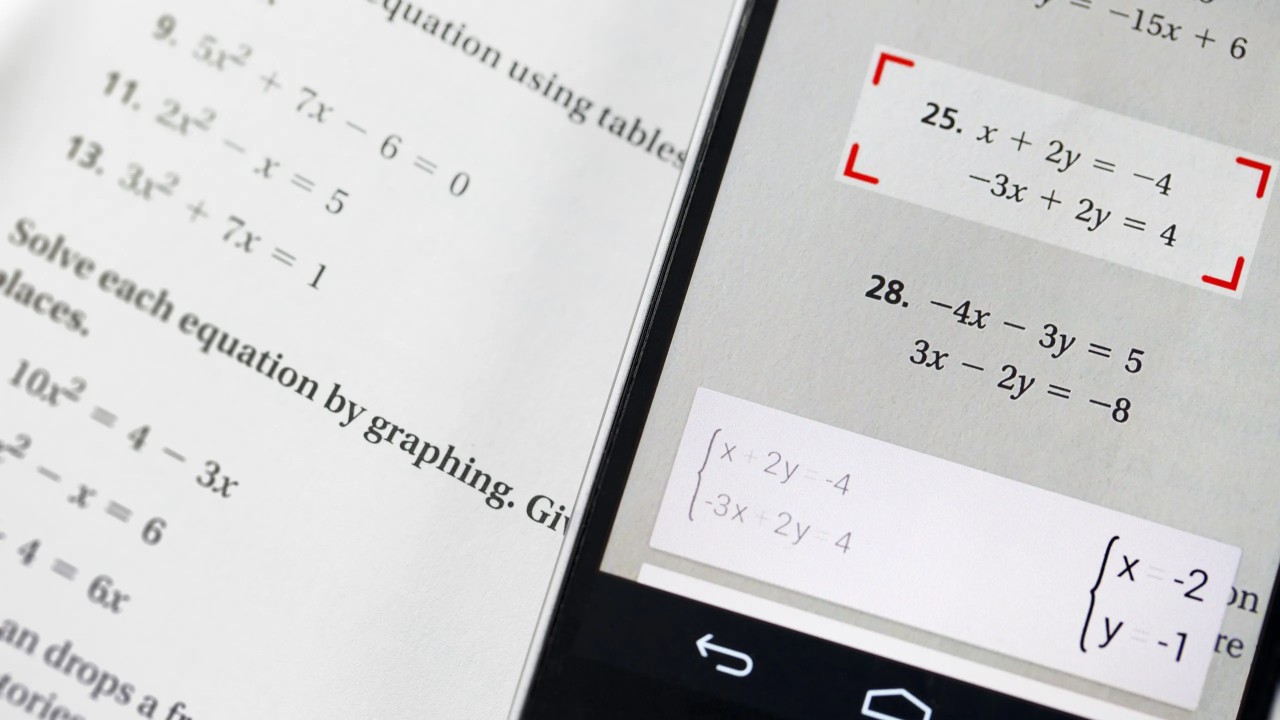 equation using tables
9. 5x² + 7x − 6 = 0
11. 2x² − x = 5
13. 3x² + 7x = 1
Solve each equation by graphing.
places.
10x² = 4 − 3x
² − x = 6
4 = 6x
an drops a
= −15x + 6
25. x + 2y = −4
−3x + 2y = 4
28. −4x − 3y = 5
3x − 2y = −8
x + 2y = -4
-3x + 2y = 4
x = -2
y = -1
on
re